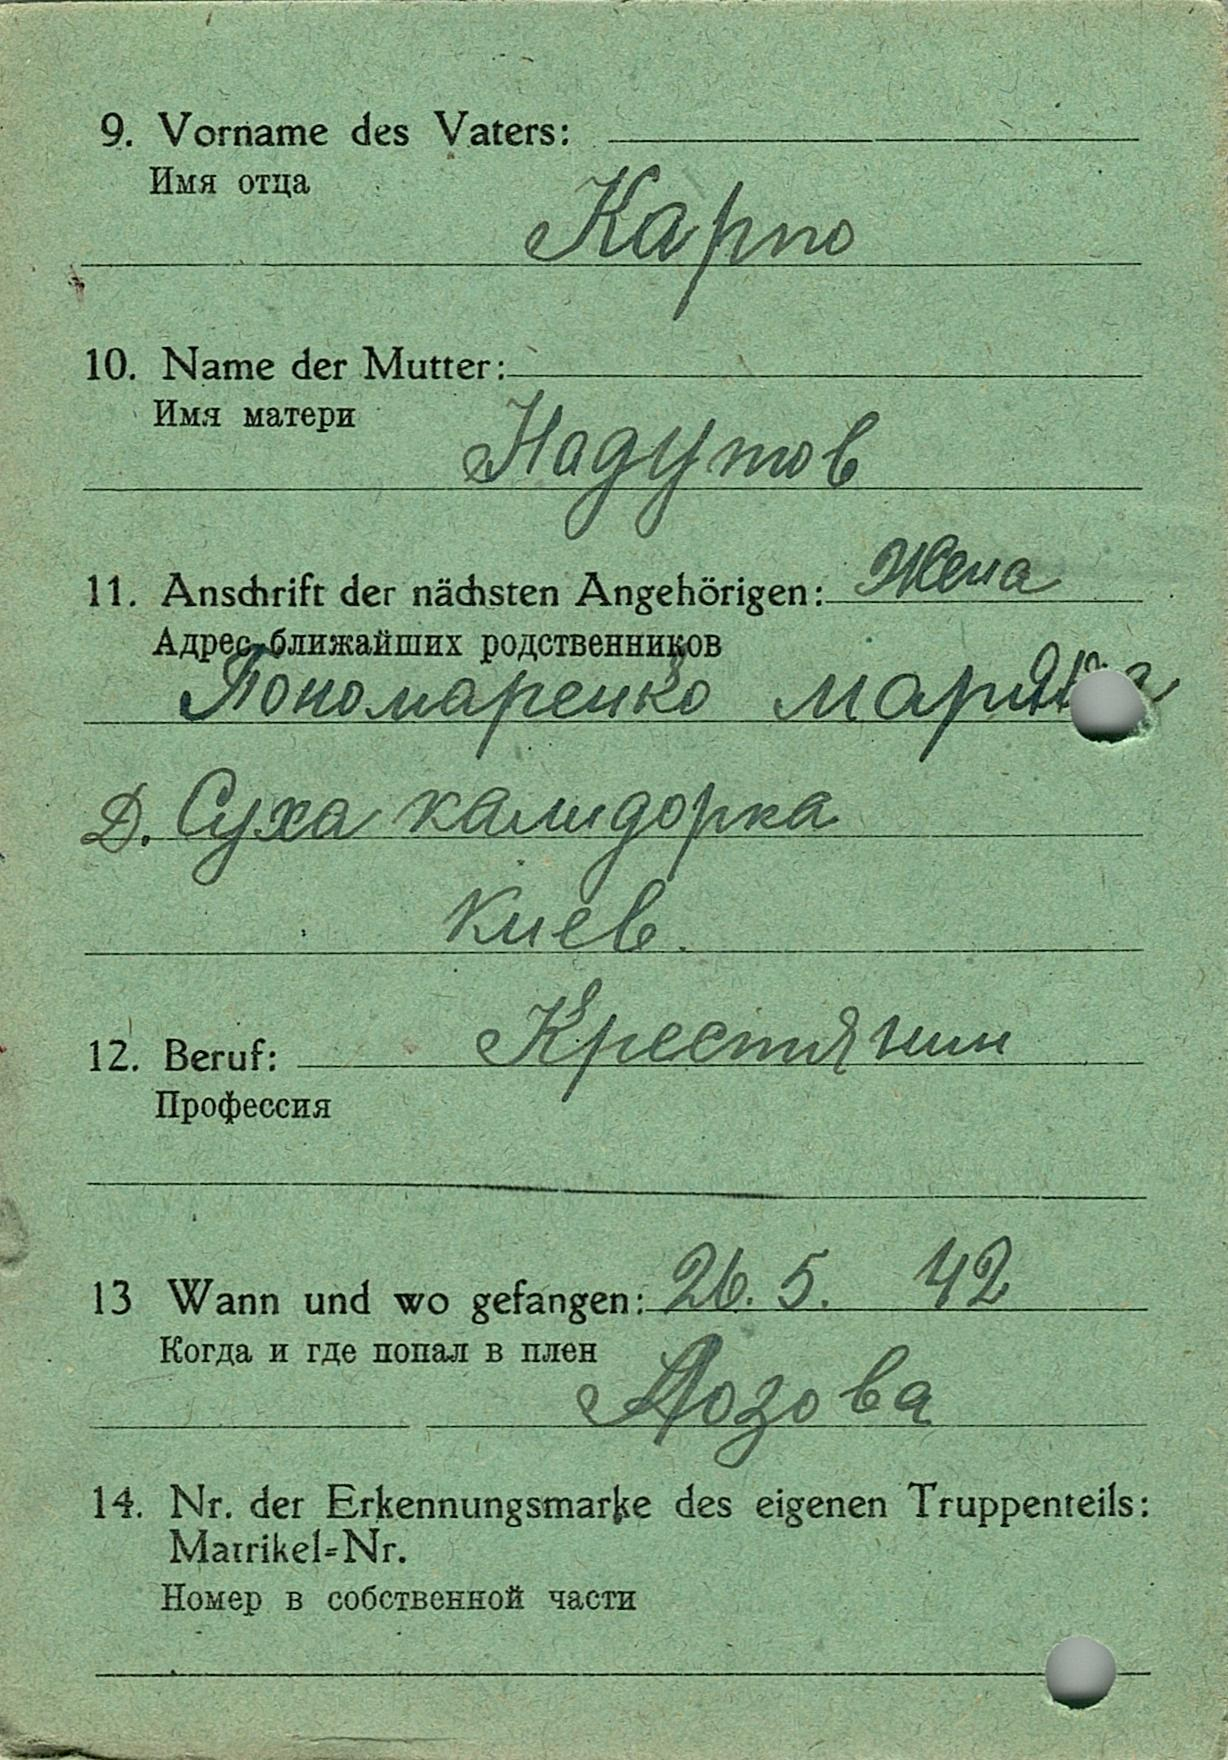 9. Vorname des Vaters:
Имя отца
Карпо
10. Name der Mutter:
Имя матери
Надутов
11. Anschrift der nächsten Angehörigen: Жена
Адрес ближайших родственников
Пономаренко
Д. Суха калидорка
Киев.
12. Beruf: Крестянин
Профессия
13 Wann und wo gefangen: 26. 5. 42
Когда и где попал в плен
Лозова
14. Nr. der Erkennungsmarke des eigenen Truppenteils:
Matrikel=Nr.
Номер в собственной части